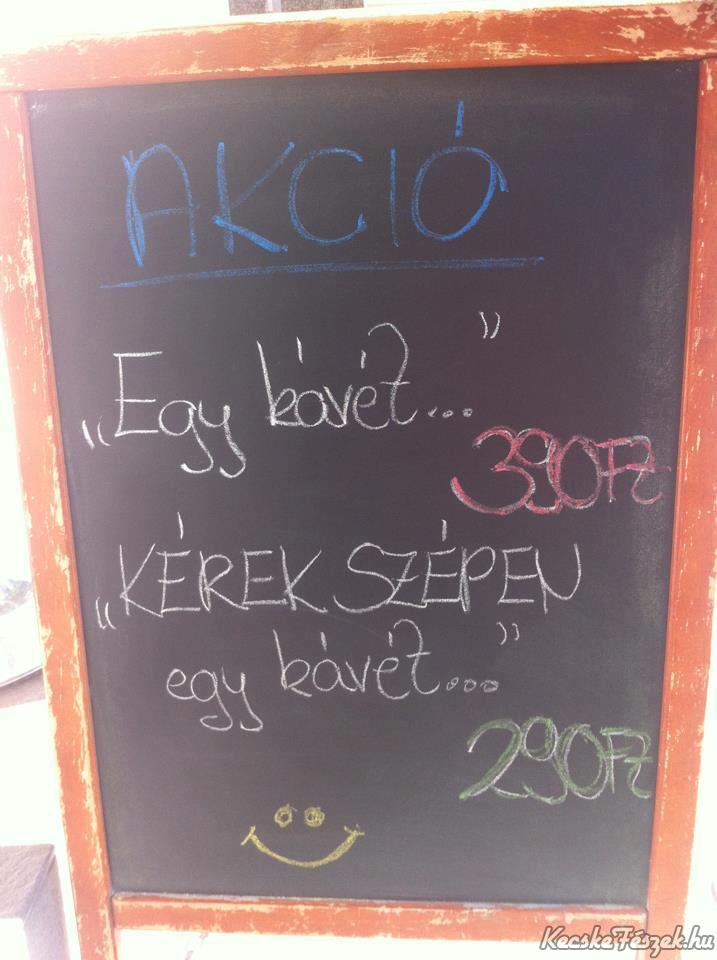 AKCIÓ
„Egy kávét..."
390Ft
„KÉREK SZÉPEN
egy kávét..."
290Ft
KecskeFészek.hu